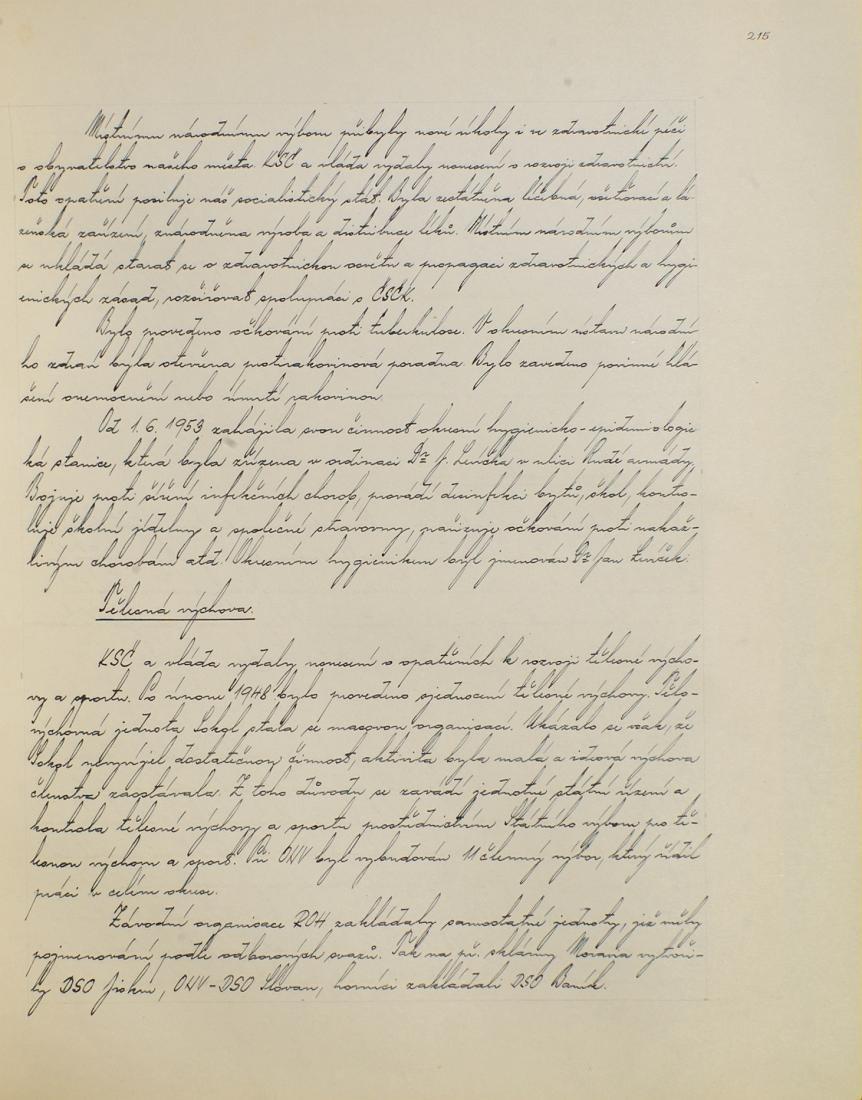 215
Místnímu národnímu výboru přibyly nové úkoly i ve zdravotnické péči
o obyvatelstvo našeho města. KSČ a vláda vydaly usnesení o rozvoji zdravotnictví.
Toto opatření posiluje náš socialistický stát. Byla zestátněna léčebná, ošetřovací a lá-
zeňská zařízení, znárodněna výroba a distribuce léků. Místním národním výborům
se ukládá starat se o zdravotnickou osvětu a propagaci zdravotnických a hygi-
enických zásad, rozšiřovat spolupráci s ČSČK.
Bylo provedeno očkování proti tuberkulose. V okresním ústavu národní-
ho zdraví byla otevřena protirakovinová poradna. Bylo zavedeno povinné hlá-
šení onemocnění nebo úmrtí rakovinou.
Od 1. 6. 1953 zahájila svou činnost okresní hygienicko-epidemiologic
ká stanice, která byla zřízena v ordinaci Dr J. Leníčka v ulici Rudé armády.
Bojuje proti šíření infekčních chorob, provádí desinfekci bytů, škol, kontro-
luje školní jídelny a společné stravovny, zařizuje očkování proti nakaž-
livým chorobám atd. Okresním hygienikem byl jmenován Dr Jan Leníček.
Tělesná výchova.
KSČ a vláda vydaly usnesení o opatřeních k rozvoji tělesné výcho-
vy a sportu. Po únoru 1948 bylo provedeno sjednocení tělesné výchovy. Tělo-
výchovná jednota Sokol stala se masovou organisací. Ukázalo se však, že
Sokol nevyvíjel dostatečnou činnost, aktivita byla malá a ideová výchova
členstva zaostávala. Z toho důvodu se zavádí jednotné státní řízení a
kontrola tělesné výchovy a sportu prostřednictvím Státního výboru pro tě-
lesnou výchovu a sport. Při ONV byl vybudován 11 členný výbor, který řídil
práci v celém okrese.
Závodní organisace ROH zakládaly samostatné jednoty, jež měly
pojmenování podle odborových svazů. Tak na př. sklárny Moravia vytvoři-
ly DSO Jiskra, ONV-DSO Slovan, horníci zakládali DSO Baník.